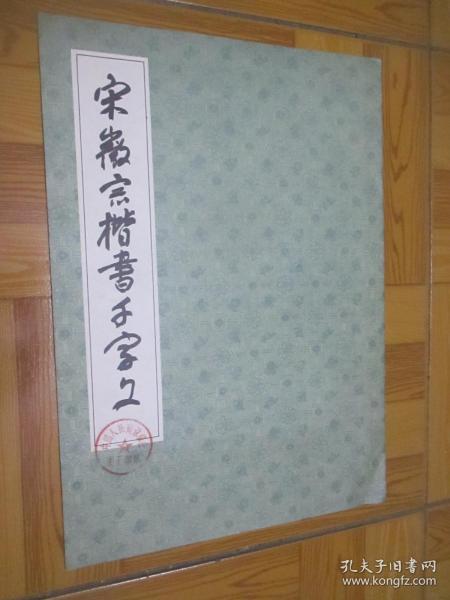 宋徽宗楷書千字文
孔夫子旧书网
www.kongfz.com